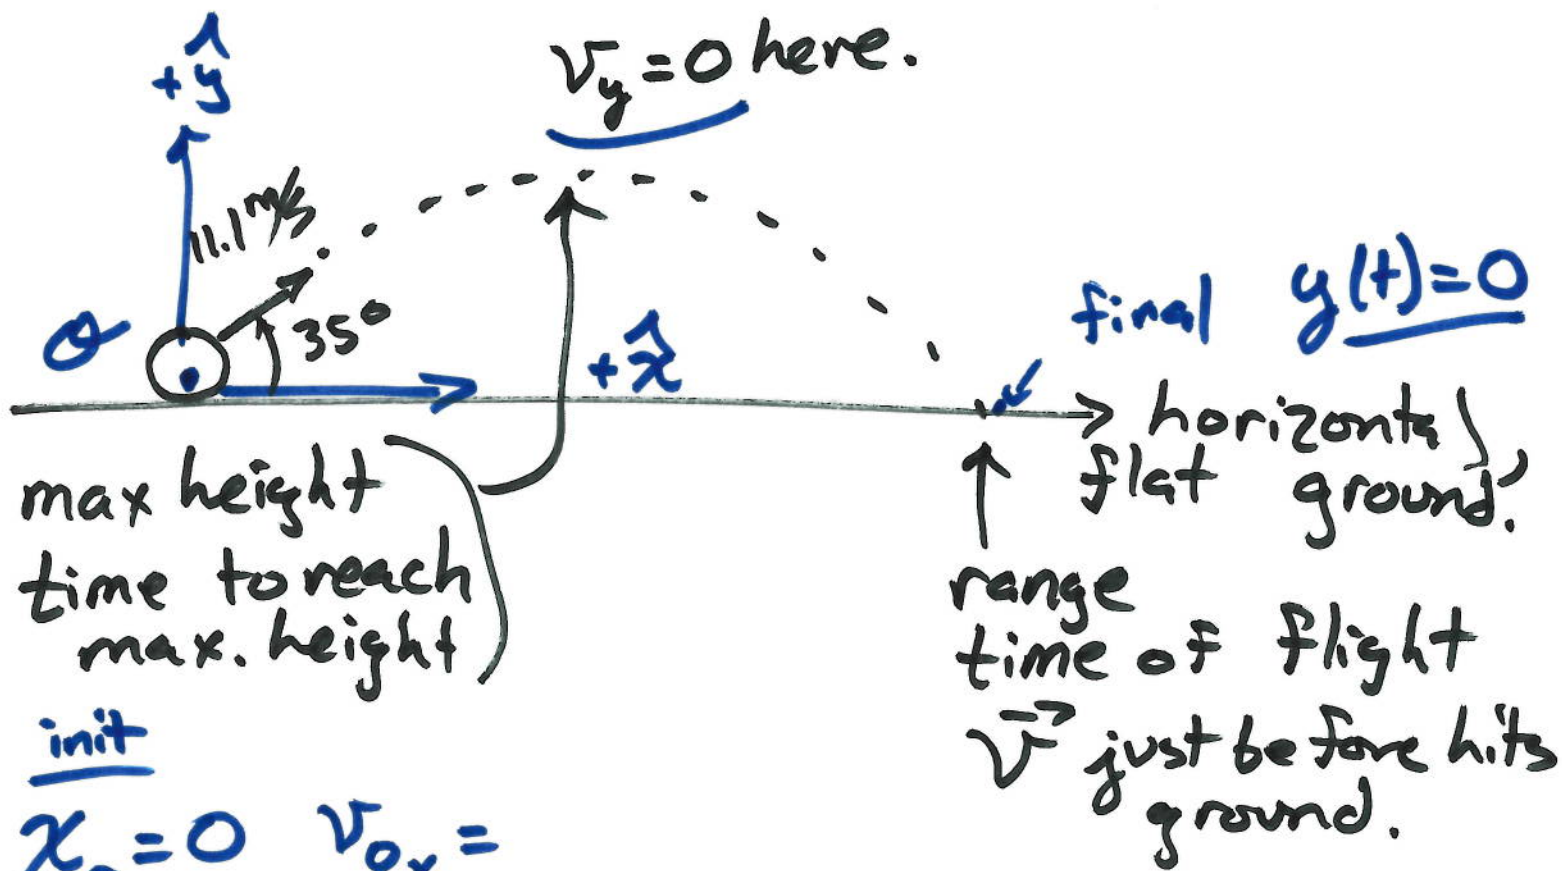 +ŷ
v_y = 0 here.
11.1 m/s
35°
+x̂
final y(t) = 0
horizontal
flat ground.
max height
time to reach
max. height
range
time of flight
v⃗ just before hits
ground.
init
x₀ = 0 v₀ₓ =